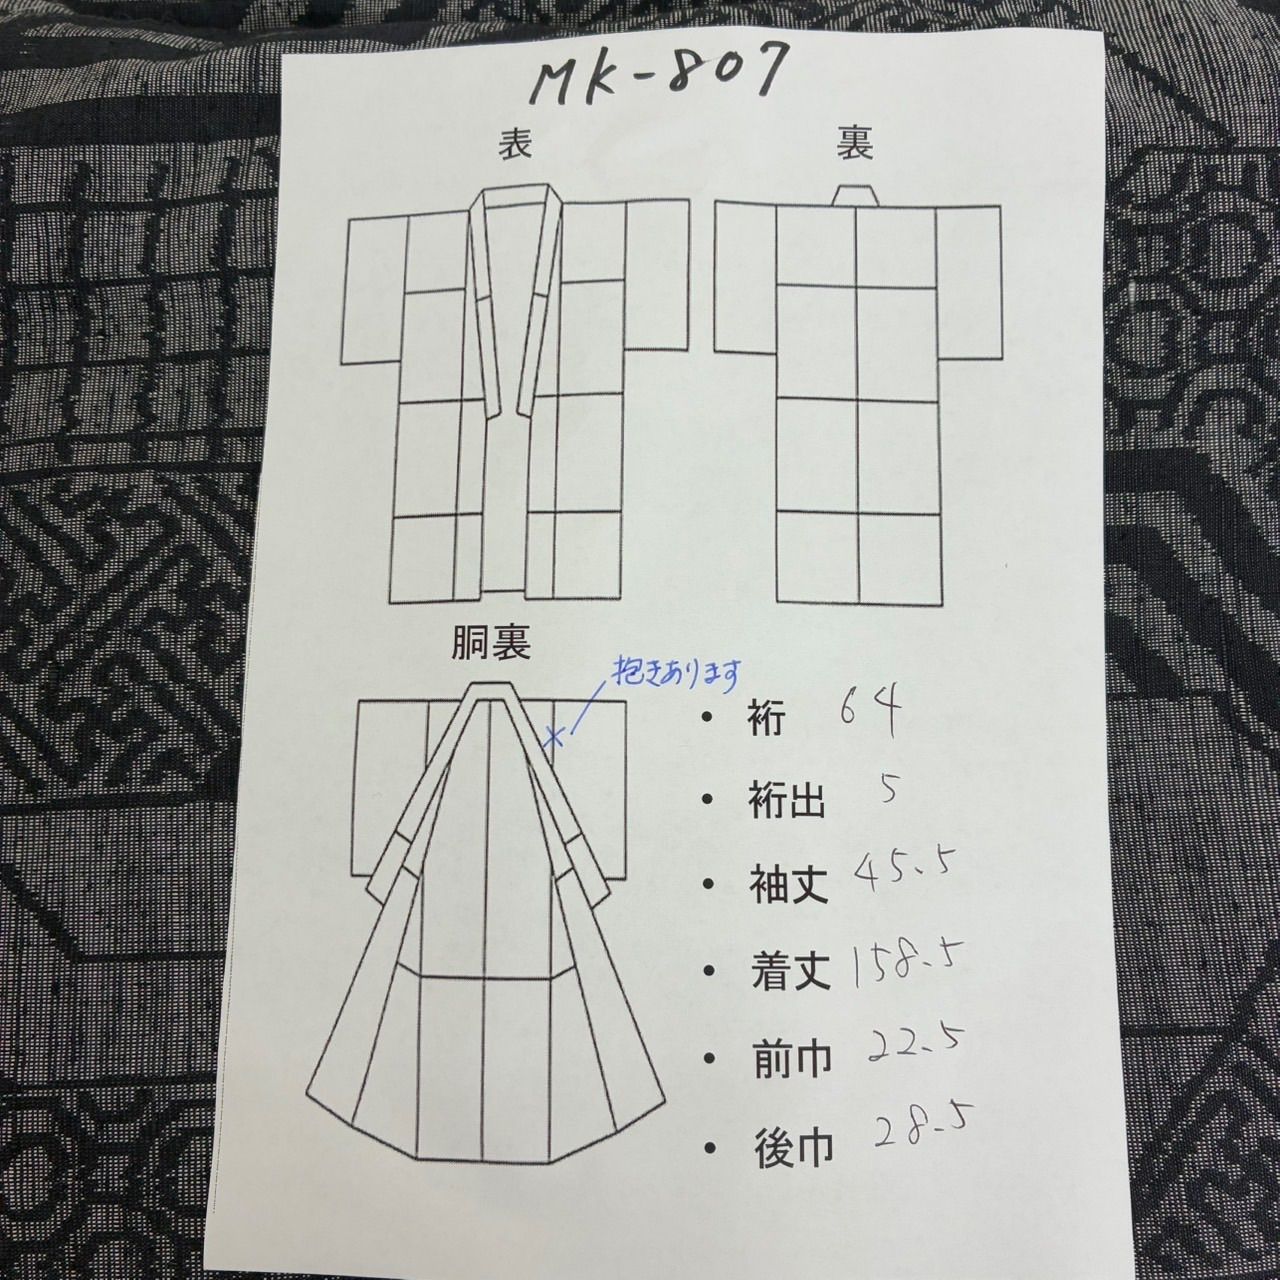 MK-807
表
裏
胴裏
抱きあります
・裄 64
・裄出 5
・袖丈 45.5
・着丈 158.5
・前巾 22.5
・後巾 28.5